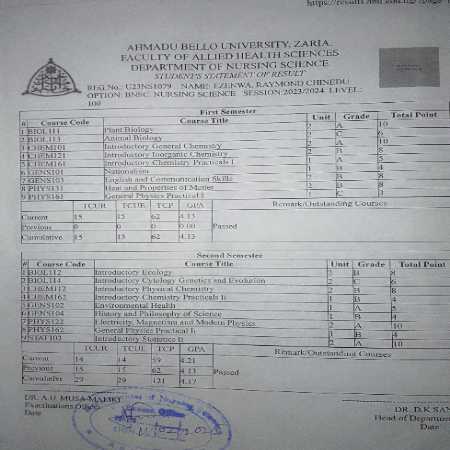 https://results.
AHMADU BELLO UNIVERSITY, ZARIA.
FACULTY OF ALLIED HEALTH SCIENCES
DEPARTMENT OF NURSING SCIENCE
STUDENT'S STATEMENT OF RESULT
REG No.: U23NS1079 NAME: EZENWA, RAYMOND CHINEDU
OPTION: BNSC. NURSING SCIENCE SESSION:2023/2024 LEVEL:
100
First Semester
# Course Code Course Title Unit Grade Total Point
1 BIOL111 Plant Biology 2 A 10
2 BIOL113 Animal Biology 2 C 6
3 CHEM101 Introductory General Chemistry 2 A 10
4 CHEM121 Introductory Inorganic Chemistry 2 B 8
5 CHEM161 Introductory Chemistry Practicals I 1 A 5
6 GENS101 Nationalism 1 B 4
7 GENS103 English and Communication Skills 2 B 8
8 PHYS131 Heat and Properties of Matter 2 B 8
9 PHYS161 General Physics Practical I 1 C 3
TCUR TCUE TCP GPA Remark/Outstanding Courses
Current 15 15 62 4.13
Previous 0 0 0 0.00 Passed
Cumulative 15 15 62 4.13
Second Semester
# Course Code Course Title Unit Grade Total Point
1 BIOL112 Introductory Ecology 2 B 8
2 BIOL114 Introductory Cytology Genetics and Evolution 2 C 6
3 CHEM112 Introductory Physical Chemistry 2 B 8
4 CHEM162 Introductory Chemistry Practicals Ii 1 B 4
5 GENS102 Environmental Health 1 A 5
6 GENS104 History and Philosophy of Science 1 B 4
7 PHYS122 Electricity, Magnetism and Modern Physics 2 A 10
8 PHYS162 General Physics Practical Ii 1 B 4
9 STAT102 Introductory Statistics Ii 2 A 10
TCUR TCUE TCP GPA Remark/Outstanding Courses
Current 14 14 59 4.21
Previous 15 15 62 4.13 Passed
Cumulative 29 29 121 4.17
DR. A.U. MUSA-MALIKI
Examinations Officer
Date
DR. D.K SAN
Head of Department
Date